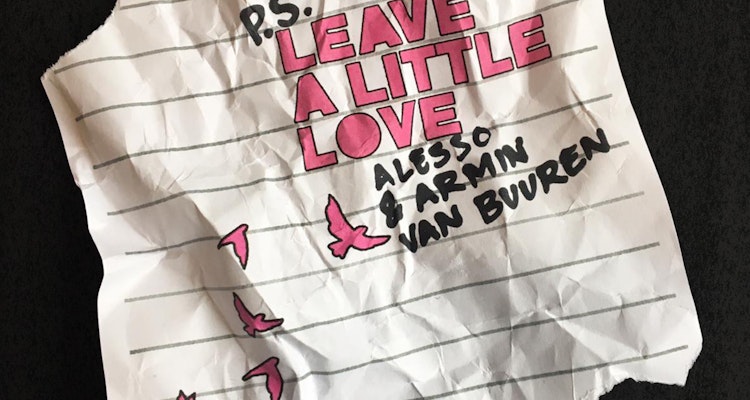 P.S.
LEAVE
A LITTLE
LOVE
ALESSO
& ARMIN
VAN BUUREN